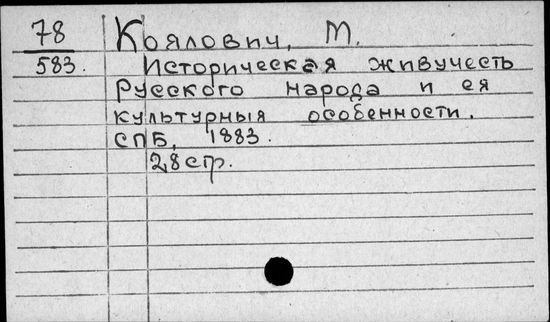 78
583.
Коялович, М.
Историческая живучесть
Русского народа и ея
культурныя особенности.
СПБ, 1883.
28 стр.